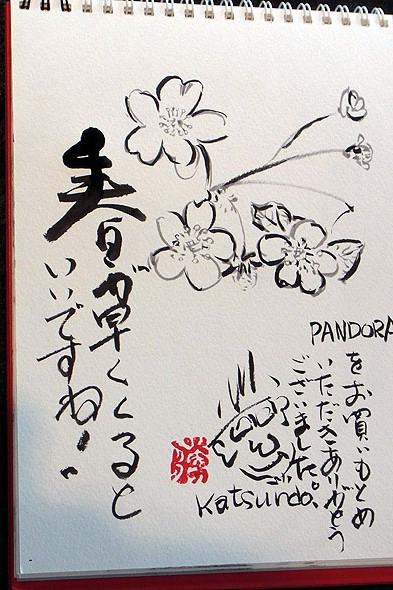 春が早くくると
いいですね!
PANDORA
をお買いもとめ
いただきありがとう
ございました。
Katsundo.
勝